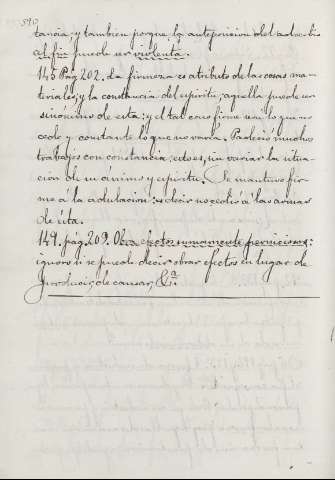 590
tancia; y tambien porque la anteposicion del adverbio
al fin puede ser violenta.
145 Pág. 202. La firmeza es atributo de las cosas ma-
teriales; y la constancia del espiritu; aquella puede ser
sinonimo de esta: y el tal caso firme será lo que no
cede y constante lo que no varía. Padeció muchos
trabajos con constancia; esto es, sin variar la situa-
cion de su animo y espiritu. Se mantuvo fir-
me á la adulacion: es decir no cedió á las armas
de ésta.
149. pág. 209. Obra efectos sumamente perniciosos:
ignoro si se puede decir obrar efectos en lugar de
producir, de causar, &a.